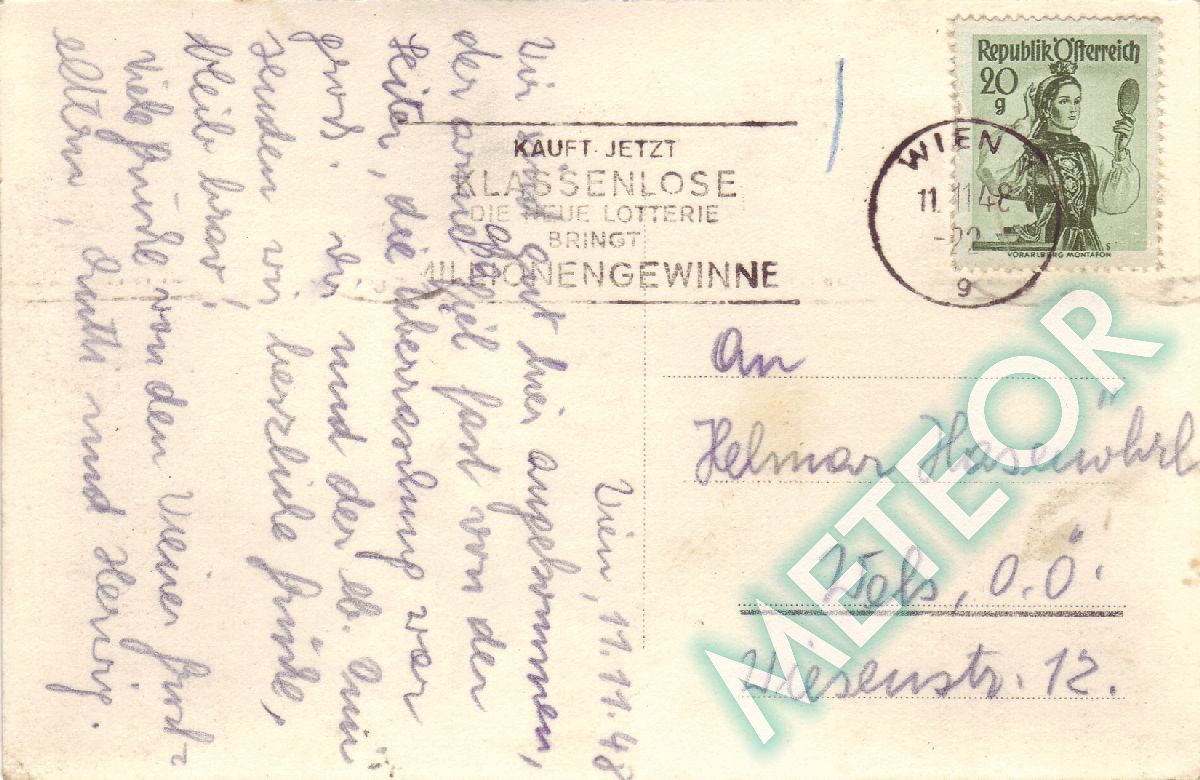 Republik Österreich
20
g
VORARLBERG MONTAFON
WIEN
11. XI 48
-22
9
KAUFT JETZT
KLASSENLOSE
DIE NEUE LOTTERIE
BRINGT
MILLIONENGEWINNE
Wien, 11.11.48
Wir sind gut hier angekommen,
der arme fiel fast von der
Leiter, die Überraschung war
groß. Wir und der lb.
senden wir herzliche Grüße,
bleib brav!
Viele Grüße von den Wiener Groß-
eltern, Gretli und
An
Helmar Hasenöhrl
Wels, O.Ö.
Wiesenstr. 12.
METEOR